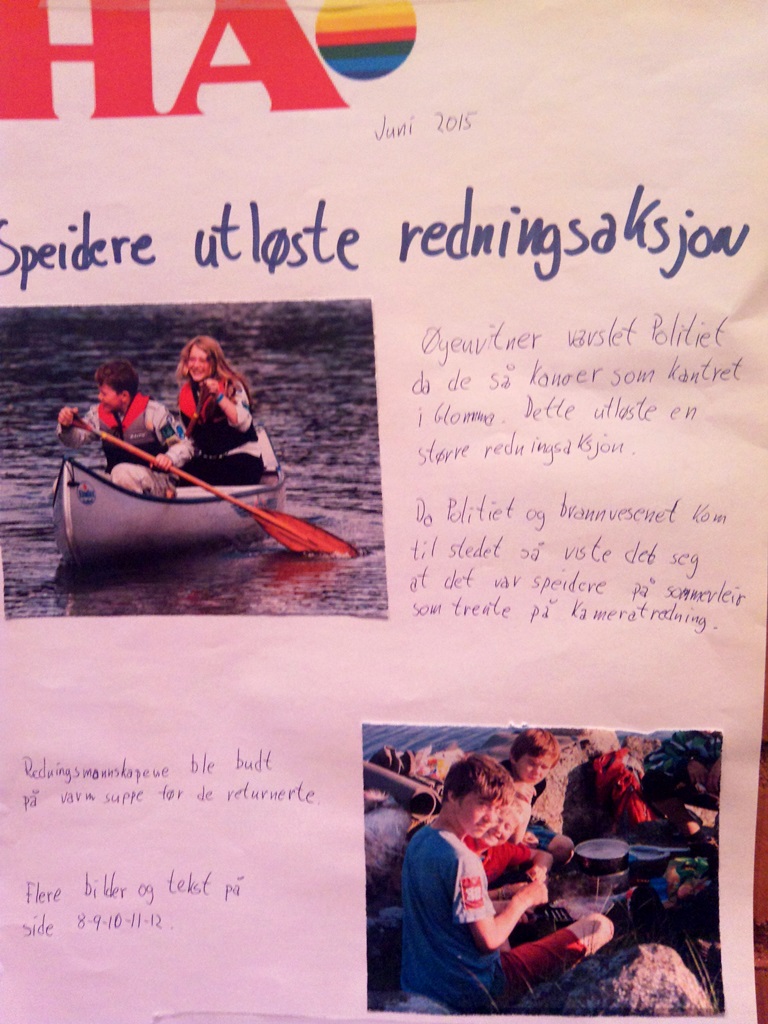 HA
Juni 2015
Speidere utløste redningsaksjon
Øyenvitner varslet Politiet
da de så kanoer som kantret
i Glomma. Dette utløste en
større redningsaksjon.
Da Politiet og brannvesenet kom
til stedet så viste det seg
at det var speidere på sommerleir
som trente på kameratredning.
Redningsmannskapene ble budt
på varm suppe før de returnerte.
Flere bilder og tekst på
side 8-9-10-11-12.